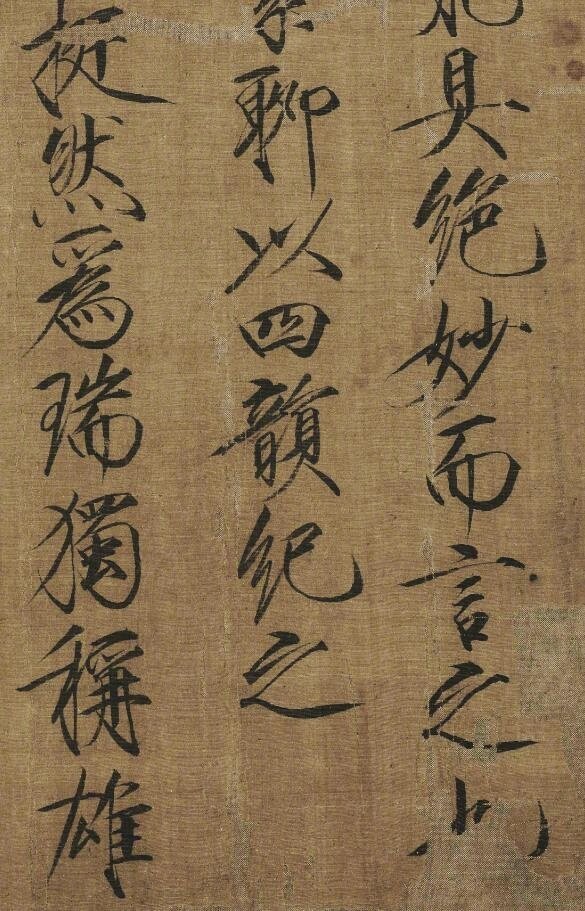 具絕妙而言之
聊以四韻紀之
挺然爲瑞獨稱雄